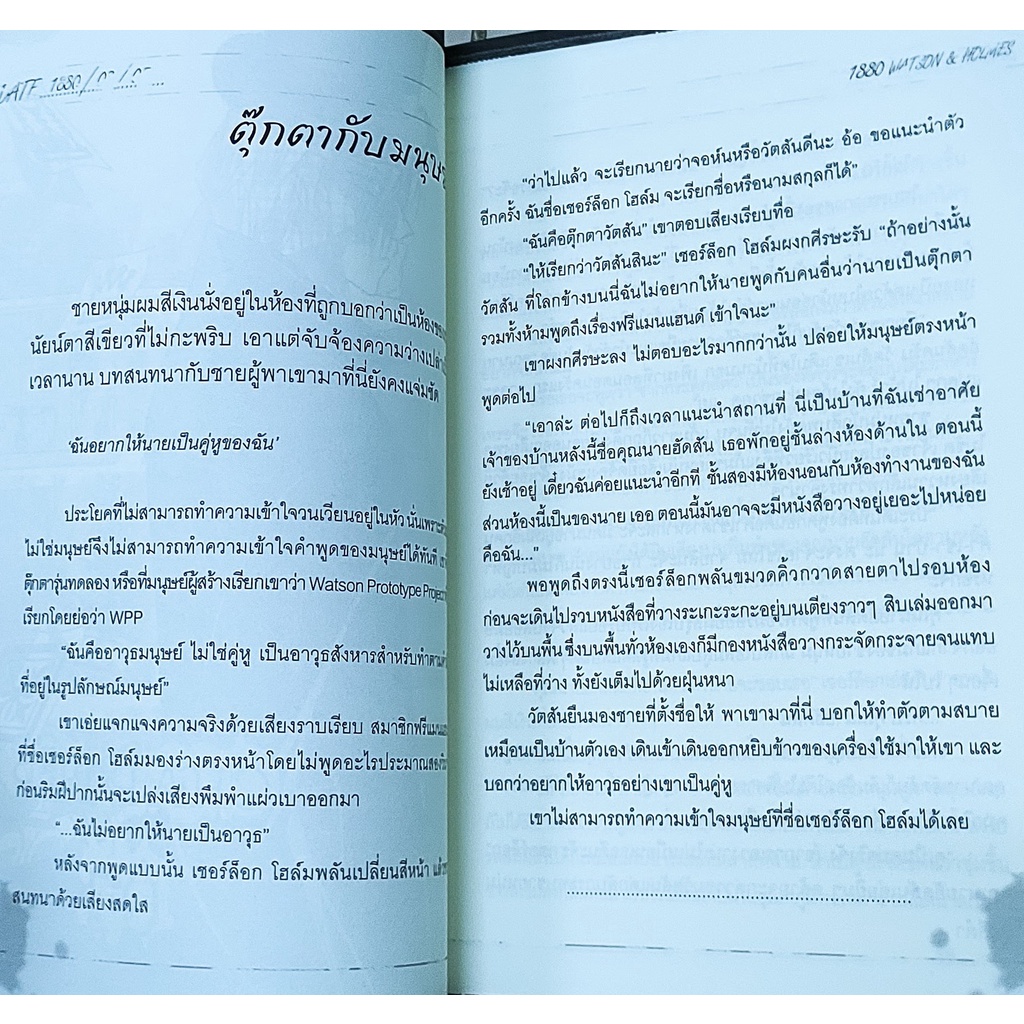 1880
ตุ๊กตากับมนุษ
ชายหนุ่มผมสีเงินนั่งอยู่ในห้องที่ถูกบอกว่าเป็นห้อง
นัยน์ตาสีเขียวที่ไม่กะพริบ เอาแต่จับจ้องความว่างเปล่า
เวลานาน บทสนทนากับชายผู้พาเขามาที่นี่ยังคงแจ่มชัด
‘ฉันอยากให้นายเป็นคู่หูของฉัน’
ประโยคที่ไม่สามารถทำความเข้าใจวนเวียนอยู่ในหัว นั่นเพราะ
ไม่ใช่มนุษย์จึงไม่สามารถทำความเข้าใจคำพูดของมนุษย์ได้ทันที
ตุ๊กตารุ่นทดลอง หรือที่มนุษย์ผู้สร้างเรียกเขาว่า Watson Prototype Project
เรียกโดยย่อว่า WPP
“ฉันคืออาวุธมนุษย์ ไม่ใช่คู่หู เป็นอาวุธสังหารสำหรับทำตาม
ที่อยู่ในรูปลักษณ์มนุษย์”
เขาเอ่ยแจกแจงความจริงด้วยเสียงราบเรียบ สมาชิกฟรีแมน
ที่ชื่อเชอร์ล็อก โฮล์มมองร่างตรงหน้าโดยไม่พูดอะไรประมาณสอง
ก่อนริมฝีปากนั้นจะเปล่งเสียงพึมพำแผ่วเบาออกมา
“...ฉันไม่อยากให้นายเป็นอาวุธ”
หลังจากพูดแบบนั้น เชอร์ล็อก โฮล์มพลันเปลี่ยนสีหน้า
สนทนาด้วยเสียงสดใส
1880 WATSON & HOLMES
“ว่าไปแล้ว จะเรียกนายว่าจอห์นหรือวัตสันดีนะ อ้อ ขอแนะนำตัว
อีกครั้ง ฉันชื่อเชอร์ล็อก โฮล์ม จะเรียกชื่อหรือนามสกุลก็ได้”
“ฉันคือตุ๊กตาวัตสัน” เขาตอบเสียงเรียบทื่อ
“ให้เรียกว่าวัตสันสินะ” เชอร์ล็อก โฮล์มผงกศีรษะรับ “ถ้าอย่างนั้น
วัตสัน ที่โลกข้างบนนี้ฉันไม่อยากให้นายพูดกับคนอื่นว่านายเป็นตุ๊กตา
รวมทั้งห้ามพูดถึงเรื่องฟรีแมนแฮนด์ เข้าใจนะ”
เขาผงกศีรษะลง ไม่ตอบอะไรมากกว่านั้น ปล่อยให้มนุษย์ตรงหน้า
พูดต่อไป
“เอาล่ะ ต่อไปก็ถึงเวลาแนะนำสถานที่ นี่เป็นบ้านที่ฉันเช่าอาศัย
เจ้าของบ้านหลังนี้ชื่อคุณนายฮัดสัน เธอพักอยู่ชั้นล่างห้องด้านใน ตอนนี้
ยังเช้าอยู่ เดี๋ยวฉันค่อยแนะนำอีกที ชั้นสองมีห้องนอนกับห้องทำงานของฉัน
ส่วนห้องนี้เป็นของนาย เออ ตอนนี้มันอาจจะมีหนังสือวางอยู่เยอะไปหน่อย
คือฉัน...”
พอพูดถึงตรงนี้เชอร์ล็อกพลันขมวดคิ้วกวาดสายตาไปรอบห้อง
ก่อนจะเดินไปรวบหนังสือที่วางระเกะระกะอยู่บนเตียงราวๆ สิบเล่มออกมา
วางไว้บนพื้น ซึ่งบนพื้นทั่วห้องเองก็มีกองหนังสือวางกระจัดกระจายจนแทบ
ไม่เหลือที่ว่าง ทั้งยังเต็มไปด้วยฝุ่นหนา
วัตสันยืนมองชายที่ตั้งชื่อให้ พาเขามาที่นี่ บอกให้ทำตัวตามสบาย
เหมือนเป็นบ้านตัวเอง เดินเข้าเดินออกหยิบข้าวของเครื่องใช้มาให้เขา และ
บอกว่าอยากให้อาวุธอย่างเขาเป็นคู่หู
เขาไม่สามารถทำความเข้าใจมนุษย์ที่ชื่อเชอร์ล็อก โฮล์มได้เลย